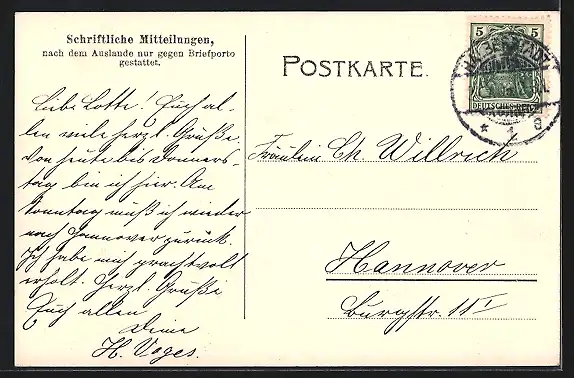 Schriftliche Mitteilungen,
nach dem Auslande nur gegen Briefporto
gestattet.
Liebe Lotte! Euch al-
len viele herzl. Grüße
von heute bis Donners-
tag bin ich hier. Am
Sonntag muß ich wieder
nach Hannover zurück.
Ich habe mich prachtvoll
erholt. Herzl. Grüße
Euch allen
Deine
H. Voges.
POSTKARTE.
5 5
DEUTSCHES REICH
HALBERSTADT
* 1 c
Fräulein Ch. Willrich
Hannover
Burgstr. 11 I